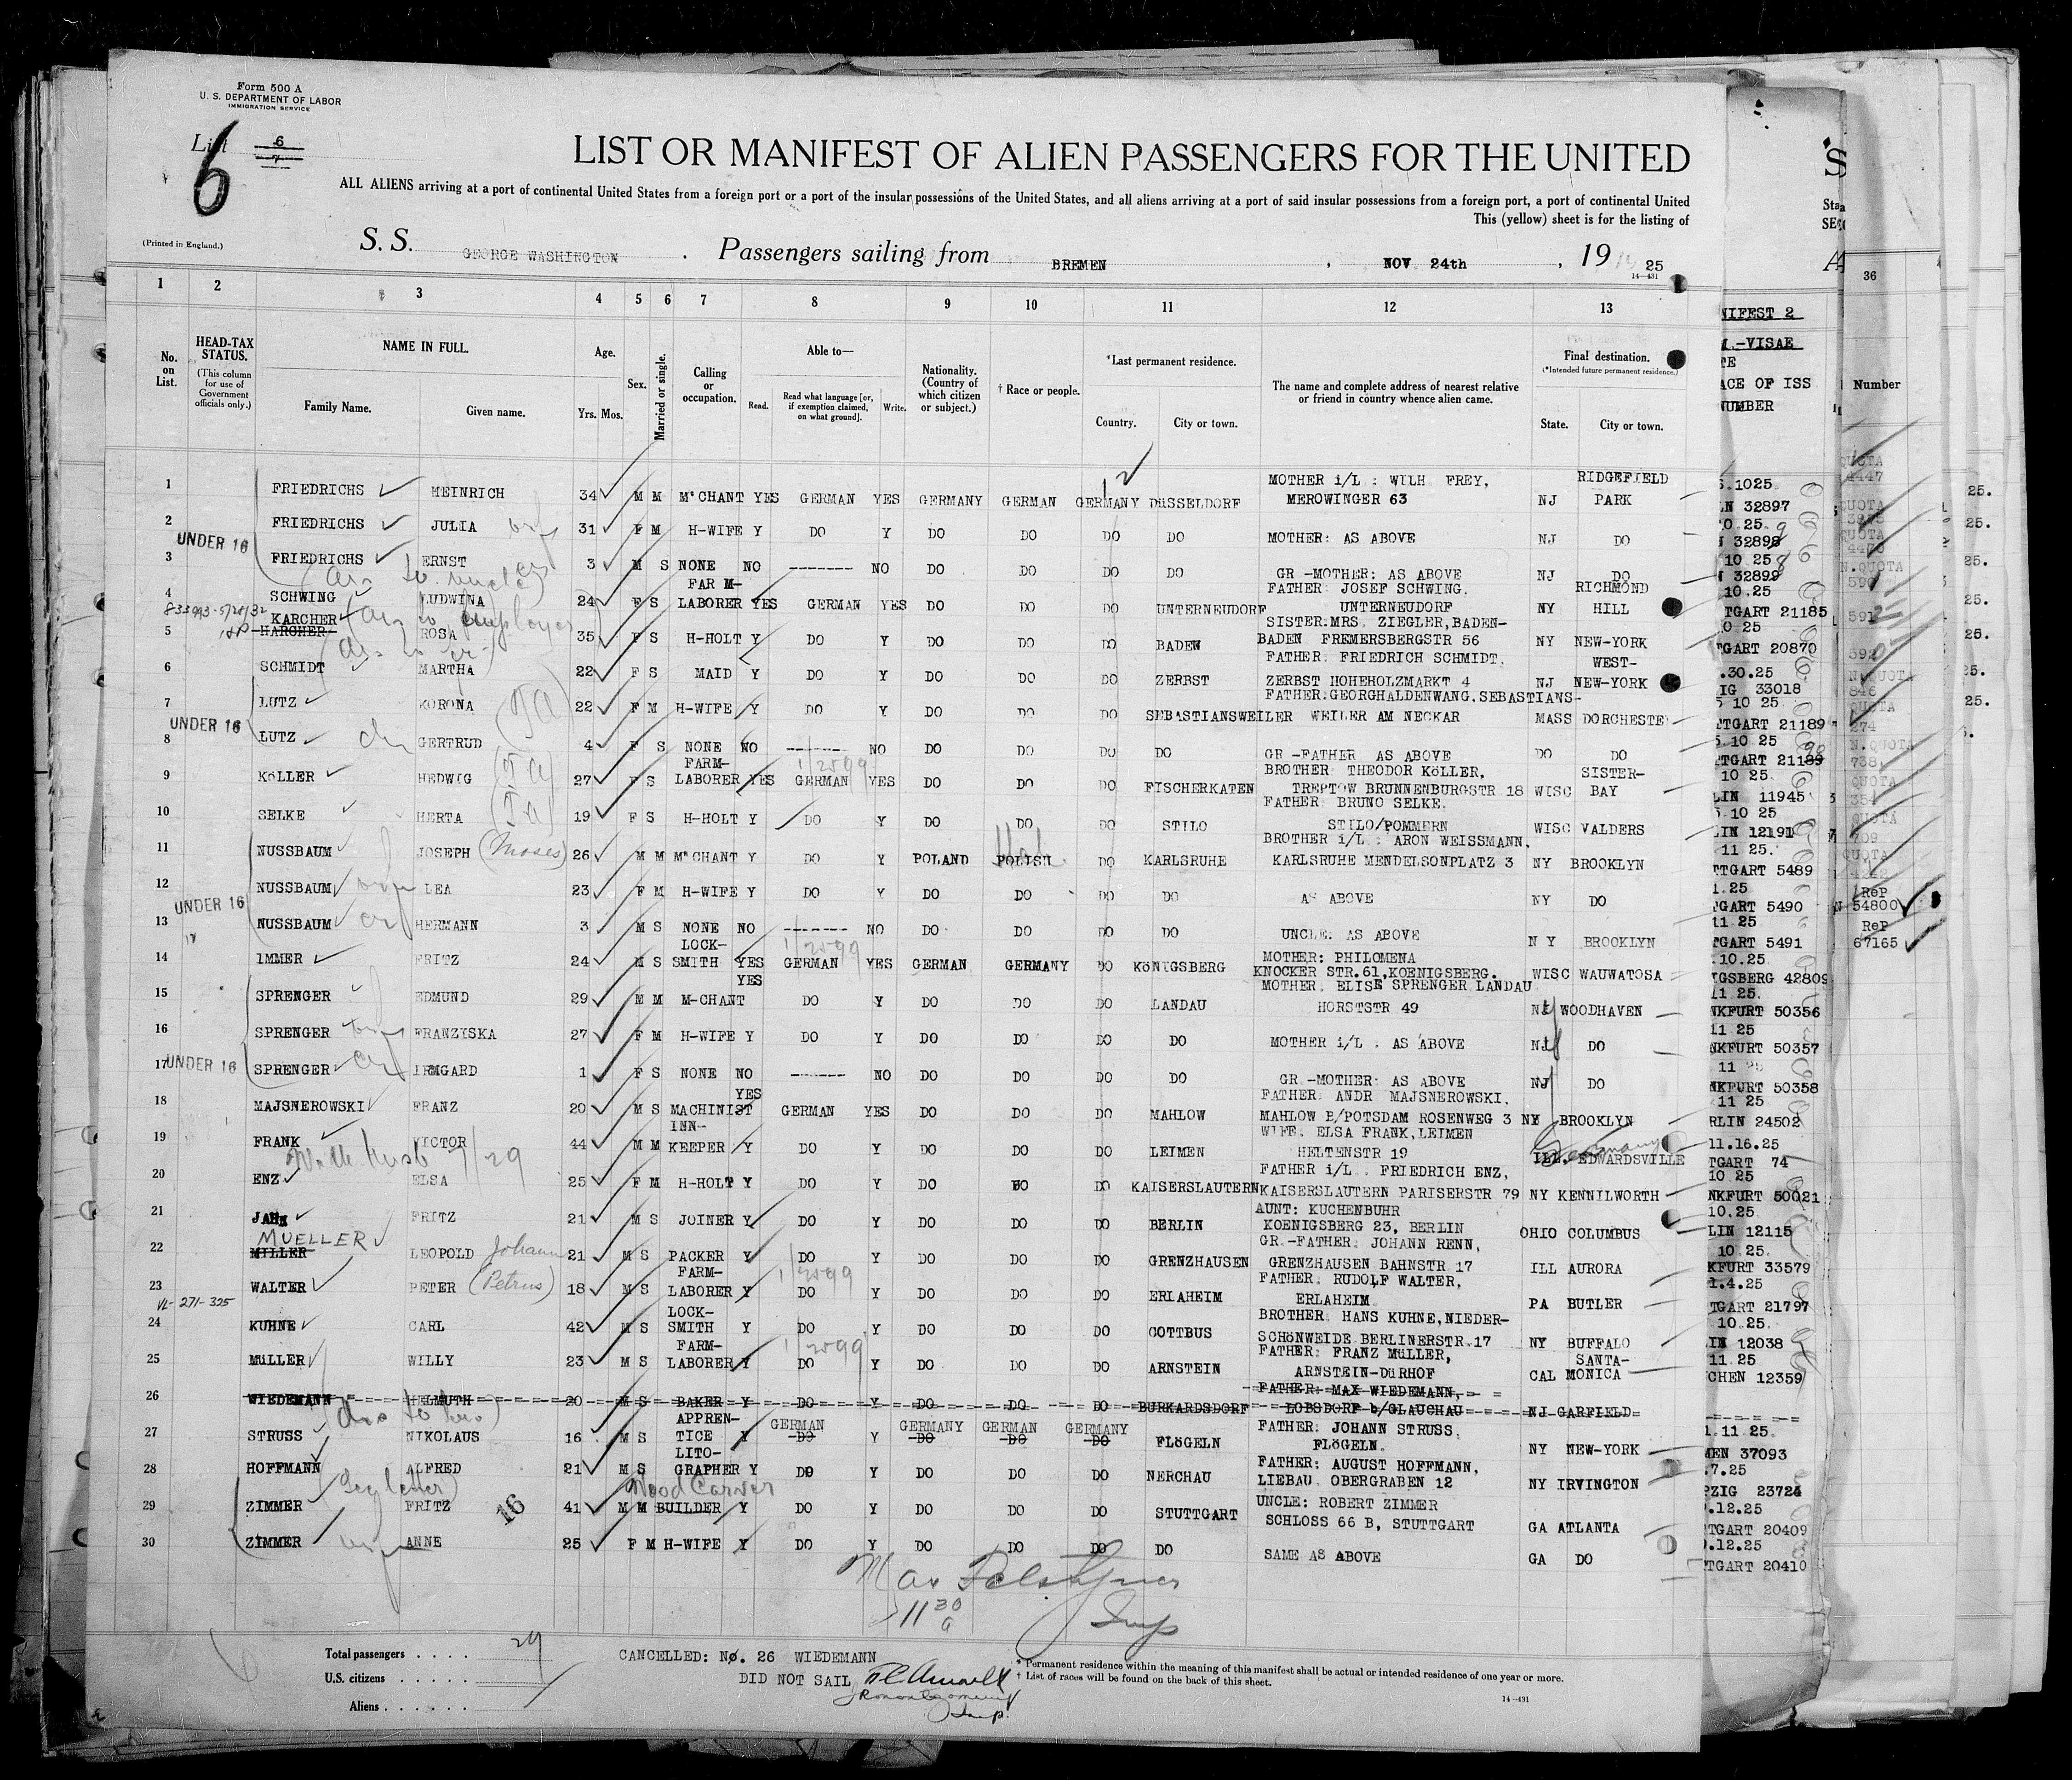 Form 500 A
U. S. DEPARTMENT OF LABOR
IMMIGRATION SERVICE
List 6
7
6
LIST OR MANIFEST OF ALIEN PASSENGERS FOR THE UNITED
ALL ALIENS arriving at a port of continental United States from a foreign port or a port of the insular possessions of the United States, and all aliens arriving at a port of said insular possessions from a foreign port, a port of continental United
This (yellow) sheet is for the listing of
(Printed in England.)
S. S. GEORGE WASHINGTON . Passengers sailing from BREMEN , NOV 24th , 19 25
14—431
1 2 3 4 5 6 7 8 9 10 11 12 13 36
No. on List. HEAD-TAX STATUS. (This column for use of Government officials only.) NAME IN FULL. Family Name. Given name. Age. Yrs. Mos. Sex. Married or single. Calling or occupation. Able to— Read. Read what language [or, if exemption claimed, on what ground]. Write. Nationality. (Country of which citizen or subject.) † Race or people. *Last permanent residence. Country. City or town. The name and complete address of nearest relative or friend in country whence alien came. Final destination. (*Intended future permanent residence.) State. City or town.
NIFEST 2
.-VISAE
ACE OF ISS
NUMBER
Number
1 FRIEDRICHS HEINRICH 34 M M M'CHANT YES GERMAN YES GERMANY GERMAN GERMANY DüSSELDORF MOTHER i/L : WILH FREY, MEROWINGER 63 NJ RIDGEFIELD PARK 32897
2 FRIEDRICHS JULIA 31 F M H-WIFE Y DO Y DO DO DO DO MOTHER: AS ABOVE NJ DO 32898
UNDER 16
3 FRIEDRICHS ERNST 3 M S NONE NO ------- NO DO DO DO DO GR -MOTHER: AS ABOVE NJ DO 32899
4 SCHWING LUDWINA 24 F S FAR M- LABORER YES GERMAN YES DO DO DO UNTERNEUDORF FATHER: JOSEF SCHWING. UNTERNEUDORF NY RICHMOND HILL TGART 21185
5 KARCHER HARCHER ROSA 35 F S H-HOLT Y DO Y DO DO DO BADEN SISTER.MRS. ZIEGLER, BADEN- BADEN FREMERSBERGSTR 56 NY NEW-YORK TGART 20870
6 SCHMIDT MARTHA 22 F S MAID Y DO Y DO DO DO ZERBST FATHER: FRIEDRICH SCHMIDT. ZERBST HOHEHOLZMARKT 4 NJ WEST- NEW-YORK IG 33018
7 LUTZ KORONA 22 F M H-WIFE Y DO Y DO DO DO SEBASTIANSWEILER FATHER:GEORGHALDENWANG.SEBASTIANS- WEILER AM NECKAR MASS DORCHESTE TGART 21189
UNDER 16
8 LUTZ GERTRUD 4 F S NONE NO ------- NO DO DO DO DO GR -FATHER AS ABOVE DO DO TGART 21189
9 KöLLER HEDWIG 27 F S FARM- LABORER YES GERMAN YES DO DO DO FISCHERKATEN BROTHER: THEODOR KöLLER, TREPTOW BRUNNENBURGSTR 18 WISC SISTER- BAY LIN 11945
10 SELKE HERTA 19 F S H-HOLT Y DO Y DO DO DO STILO FATHER: BRUNO SELKE. STILO/POMMERN WISC VALDERS LIN 12191
11 NUSSBAUM JOSEPH (Moses) 26 M M M'CHANT Y DO Y POLAND POLISH DO KARLSRUHE BROTHER i/L : ARON WEISSMANN. KARLSRUHE MENDELSONPLATZ 3 NY BROOKLYN TTGART 5489
12 NUSSBAUM LEA 23 F M H-WIFE Y DO Y DO DO DO DO AS ABOVE NY DO TGART 5490 ReP 54800
UNDER 16
13 NUSSBAUM HERMANN 3 M S NONE NO ------- NO DO DO DO DO UNCLE: AS ABOVE N Y BROOKLYN TGART 5491 ReP 67165
14 IMMER FRITZ 24 M S LOCK- SMITH YES GERMAN YES GERMAN GERMANY DO KöNIGSBERG MOTHER: PHILOMENA KNOCKER STR.61,KOENIGSBERG. WISC WAUWATOSA IGSBERG 42809
15 SPRENGER EDMUND 29 M M M-CHANT YES DO Y DO DO DO LANDAU MOTHER. ELISE SPRENGER LANDAU HORSTSTR 49 NY WOODHAVEN NKFURT 50356
16 SPRENGER FRANZISKA 27 F M H-WIFE Y DO Y DO DO DO DO MOTHER i/L : AS ABOVE NJ DO NKFURT 50357
UNDER 16
17 SPRENGER IRMGARD 1 F S NONE NO ------- NO DO DO DO DO GR.-MOTHER: AS ABOVE NJ DO NKFURT 50358
18 MAJSNEROWSKI FRANZ 20 M S MACHINIST YES GERMAN YES DO DO DO MAHLOW FATHER: ANDR MAJSNEROWSKI, MAHLOW B/POTSDAM ROSENWEG 3 NY BROOKLYN RLIN 24502
19 FRANK VICTOR 44 M M INN- KEEPER Y DO Y DO DO DO LEIMEN WIFE: ELSA FRANK,LEIMEN HELTENSTR 19 Germany ILL. EDWARDSVILLE 11.16.25 TGART 74
20 ENZ ELSA 25 F M H-HOLT Y DO Y DO DO DO KAISERSLAUTERN FATHER i/L . FRIEDRICH ENZ, KAISERSLAUTERN PARISERSTR 79 NY KENNILWORTH NKFURT 50021
21 JAHN FRITZ 21 M S JOINER Y DO Y DO DO DO BERLIN AUNT: KUCHENBUHR KOENIGSBERG 23, BERLIN OHIO COLUMBUS LIN 12115
22 MUELLER MILLER LEOPOLD Johann 21 M S PACKER Y DO Y DO DO DO GRENZHAUSEN GR.-FATHER: JOHANN RENN, GRENZHAUSEN BAHNSTR 17 ILL AURORA KFURT 33579
23 WALTER PETER (Petrus) 18 M S FARM- LABORER Y DO Y DO DO DO ERLAHEIM FATHER: RUDOLF WALTER, ERLAHEIM PA BUTLER TGART 21797
VL-271-325
24 KUHNE CARL 42 M S LOCK- SMITH Y DO Y DO DO DO COTTBUS BROTHER: HANS KUHNE,NIEDER- SCHöNWEIDE BERLINERSTR.17 NY BUFFALO IN 12038
25 MüLLER WILLY 23 M S FARM- LABORER Y DO Y DO DO DO ARNSTEIN FATHER: FRANZ MüLLER, ARNSTEIN-DüRHOF CAL SANTA- MONICA CHEN 12359
26 WIEDEMANN HELMUTH 20 M S BAKER Y DO Y DO DO DO BURKARDSDORF FATHER: MAX WIEDEMANN, LOBSDORF b/GLAUCHAU NJ GARFIELD
27 STRUSS NIKOLAUS 16 M S APPREN- TICE Y GERMAN DO Y GERMANY DO GERMAN DO GERMANY DO FLöGELN FATHER: JOHANN STRUSS. FLöGELN. NY NEW-YORK MEN 37093
28 HOFFMANN ALFRED 21 M S LITO- GRAPHER Y DO Y DO DO DO NERCHAU FATHER: AUGUST HOFFMANN, LIEBAU OBERGRABEN 12 NY IRVINGTON PZIG 23724
29 ZIMMER FRITZ 16 41 M M Wood Carver BUILDER Y DO Y DO DO DO STUTTGART UNCLE: ROBERT ZIMMER SCHLOSS 66 B, STUTTGART GA ATLANTA TGART 20409
30 ZIMMER ANNE 25 F M H-WIFE Y DO Y DO DO DO DO SAME AS ABOVE GA DO TGART 20410
11 30 a
Insp
Total passengers . . . . 29
U.S. citizens . . . . .
Aliens . . . . . .
CANCELLED: No. 26 WIEDEMANN
DID NOT SAIL
* Permanent residence within the meaning of this manifest shall be actual or intended residence of one year or more.
† List of races will be found on the back of this sheet.
14—431